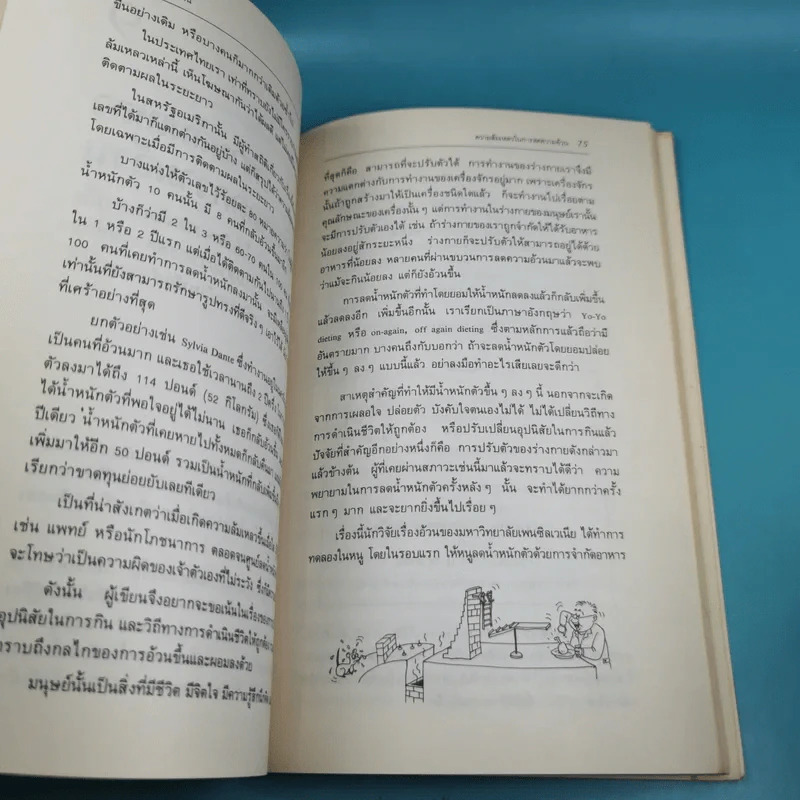 ขึ้นอย่างเดิม หรือบางคนก็มากกว่าเดิมด้วยซ้ำไป
ในประเทศไทยเรา เท่าที่ทราบยังไม่มี
ล้มเหลวเหล่านี้ เห็นโฆษณากันว่าได้ผลดี
ติดตามผลในระยะยาว
ในสหรัฐอเมริกานั้น มีผู้ทำสถิติเกี่ยวกับ
เลขที่ได้มาก็แตกต่างกันอยู่บ้าง แต่ก็สรุปได้ว่า
โดยเฉพาะเมื่อมีการติดตามผลในระยะยาว
บางแห่งให้ตัวเลขไว้ร้อยละ 80 หมายความว่า
น้ำหนักตัว 10 คนนั้น มี 8 คนที่กลับอ้วนขึ้น
บ้างก็ว่ามี 2 ใน 3 หรือ 60-70 คนใน 100
ใน 1 หรือ 2 ปีแรก แต่เมื่อได้ติดตามกันไป
100 คนที่เคยทำการลดน้ำหนักลงมานั้น จะมี
เท่านั้นที่ยังสามารถรักษารูปทรงที่ดีจริง ๆ เอาไว้ได้
ที่เศร้าอย่างที่สุด
ยกตัวอย่างเช่น Sylvia Dante ซึ่งทำงานอยู่
เป็นคนที่อ้วนมาก และเธอใช้เวลานานถึง 2 ปีครึ่ง
ตัวลงมาได้ถึง 114 ปอนด์ (52 กิโลกรัม) ซึ่ง
ได้น้ำหนักที่พอใจอยู่ได้ไม่นาน เธอก็กลับอ้วนขึ้น
ปีเดียว น้ำหนักตัวที่เคยหายไปทั้งหมดก็กลับคืนมา
เพิ่มมาให้อีก 50 ปอนด์ รวมเป็นน้ำหนักที่กลับเพิ่มขึ้น
เรียกว่าขาดทุนย่อยยับเลยทีเดียว
เป็นที่น่าสังเกตว่าเมื่อเกิดความล้มเหลวขึ้น
เช่น แพทย์ หรือนักโภชนาการ ตลอดจนศูนย์ลดน้ำหนัก
จะโทษว่าเป็นความผิดของเจ้าตัวเองที่ไม่ระวัง
ดังนั้น ผู้เขียนจึงอยากจะขอเน้นในเรื่องของการ
อุปนิสัยในการกิน และวิถีทางการดำเนินชีวิตให้ถูกต้อง
ทราบถึงกลไกของการอ้วนขึ้นและผอมลงด้วย
มนุษย์นั้นเป็นสิ่งที่มีชีวิต มีจิตใจ มีความรู้สึกนึกคิด
ความล้มเหลวในการลดความอ้วน 15
ที่สุดก็คือ สามารถที่จะปรับตัวได้ การทำงานของร่างกายเราจึงมี
ความแตกต่างกับการทำงานของเครื่องจักรอยู่มาก เพราะเครื่องจักร
นั้นถ้าถูกสร้างมาให้เป็นเครื่องชนิดใดแล้ว ก็จะทำงานไปเรื่อยตาม
คุณลักษณะของเครื่องนั้น ๆ แต่การทำงานในร่างกายของมนุษย์เรานั้น
จะมีการปรับตัวเองได้ เช่น ถ้าร่างกายของเราถูกจำกัดให้ได้รับอาหาร
น้อยลงอยู่สักระยะหนึ่ง ร่างกายก็จะปรับตัวให้สามารถอยู่ได้ด้วย
อาหารที่น้อยลง หลายคนที่ผ่านขบวนการลดความอ้วนมาแล้วจะพบ
ว่าแม้จะกินน้อยลง แต่ก็ยังอ้วนขึ้น
การลดน้ำหนักตัวที่ทำโดยยอมให้น้ำหนักลดลงแล้วก็กลับเพิ่มขึ้น
แล้วลดลงอีก เพิ่มขึ้นอีกนั้น เราเรียกเป็นภาษาอังกฤษว่า Yo-Yo
dieting หรือ on-again, off again dieting ซึ่งตามหลักการแล้วถือว่ามี
อันตรายมาก บางคนถึงกับบอกว่า ถ้าจะลดน้ำหนักตัวโดยยอมปล่อย
ให้ขึ้น ๆ ลง ๆ แบบนี้แล้ว อย่าลงมือทำอะไรเสียเลยจะดีกว่า
สาเหตุสำคัญที่ทำให้มีน้ำหนักตัวขึ้น ๆ ลง ๆ นี้ นอกจากจะเกิด
จากการเผลอใจ ปล่อยตัว บังคับใจตนเองไม่ได้ ไม่ได้เปลี่ยนวิถีทาง
การดำเนินชีวิตให้ถูกต้อง หรือปรับเปลี่ยนอุปนิสัยในการกินแล้ว
ปัจจัยที่สำคัญอีกอย่างหนึ่งก็คือ การปรับตัวของร่างกายดังกล่าวมา
แล้วข้างต้น ผู้ที่เคยผ่านสภาวะเช่นนี้มาแล้วจะทราบได้ดีว่า ความ
พยายามในการลดน้ำหนักตัวครั้งหลัง ๆ นั้น จะทำได้ยากกว่าครั้ง
แรก ๆ มาก และจะยากยิ่งขึ้นไปเรื่อย ๆ
เรื่องนี้นักวิจัยเรื่องอ้วนของมหาวิทยาลัยเพนซิลเวเนีย ได้ทำการ
ทดลองในหนู โดยในรอบแรก ให้หนูลดน้ำหนักตัวด้วยการจำกัดอาหาร